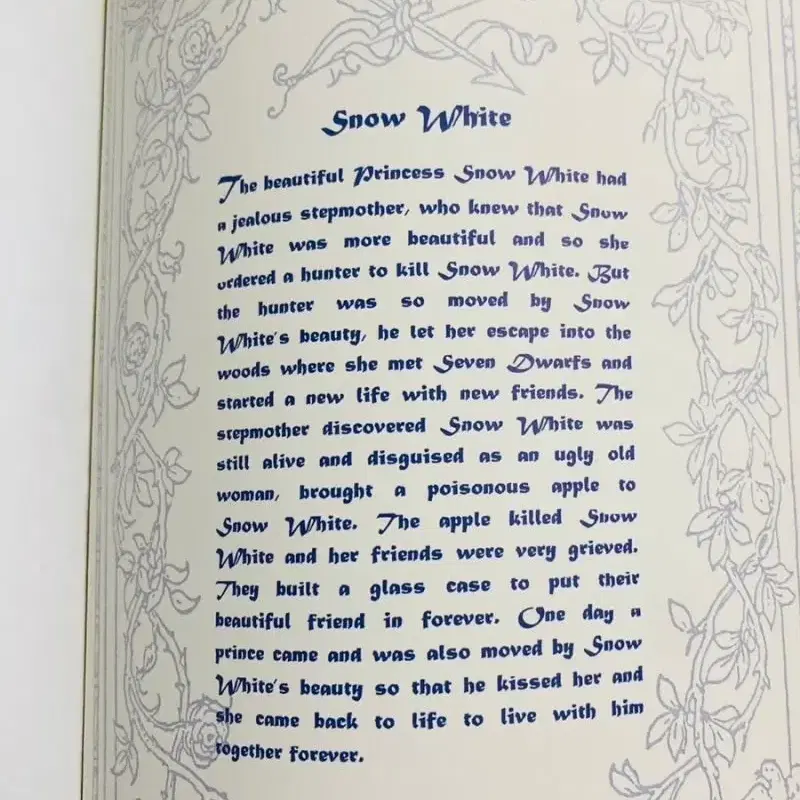 Snow White
The beautiful Princess Snow White had
a jealous stepmother, who knew that Snow
White was more beautiful and so she
ordered a hunter to kill Snow White. But
the hunter was so moved by Snow
White's beauty, he let her escape into the
woods where she met Seven Dwarfs and
started a new life with new friends. The
stepmother discovered Snow White was
still alive and disguised as an ugly old
woman, brought a poisonous apple to
Snow White. The apple killed Snow
White and her friends were very grieved.
They built a glass case to put their
beautiful friend in forever. One day a
prince came and was also moved by Snow
White's beauty so that he kissed her and
she came back to life to live with him
together forever.